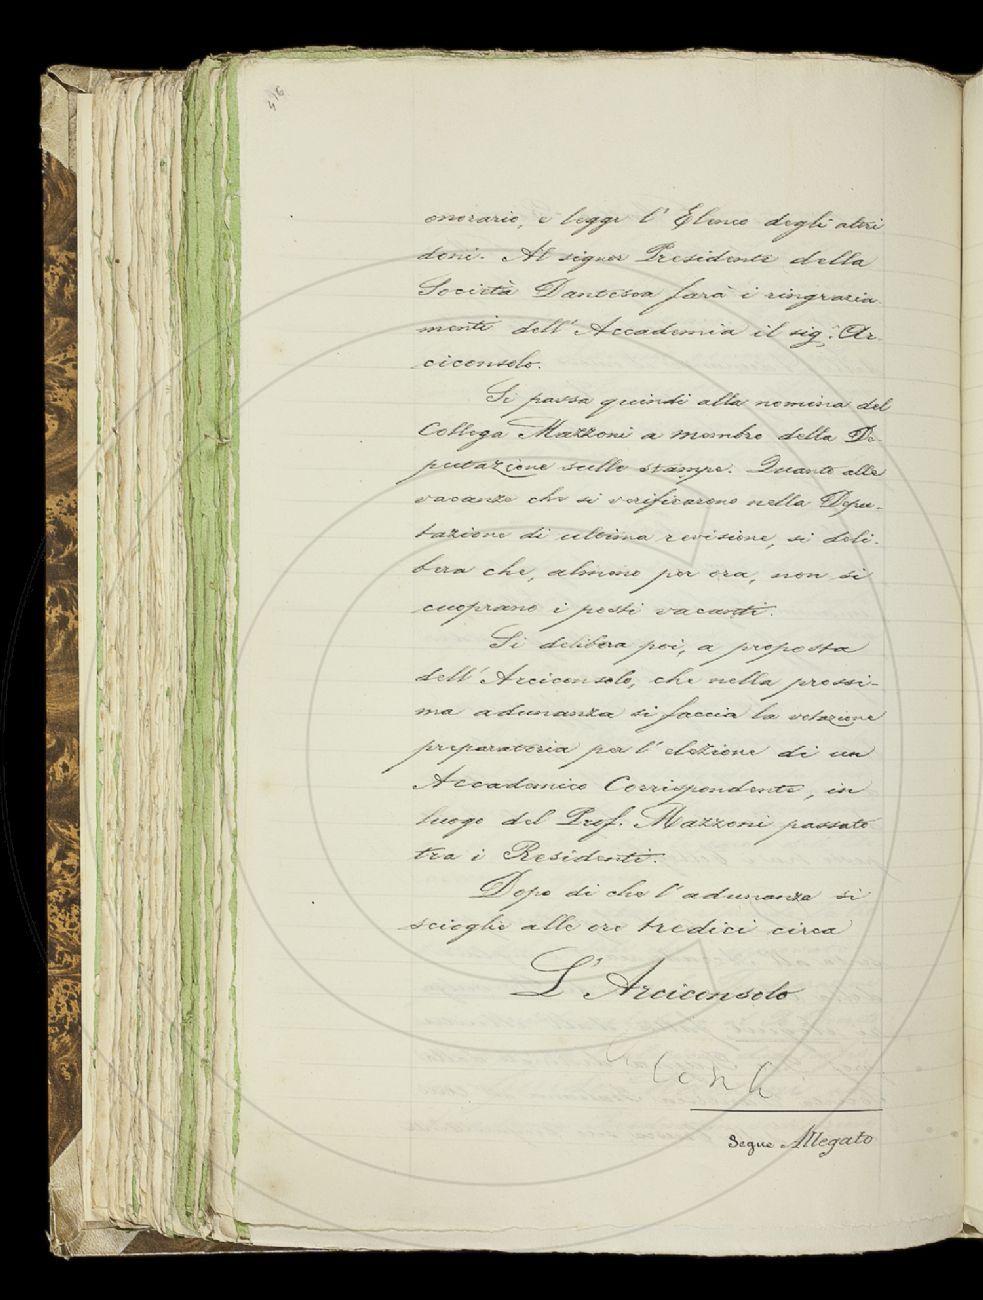 416
onorario, e legge l'Elenco degli altri
doni. Al signor Presidente della
Società Dantesca farà i ringrazia-
menti dell'Accademia il sig.r Ar-
ciconsolo.
Si passa quindi alla nomina del
Collega Mazzoni a membro della De-
putazione sulle stampe. Quanto alle
vacanze che si verificarono nella Depu-
tazione di ultima revisione, si deli-
bera che, almeno per ora, non si
cuoprano i posti vacanti.
Si delibera poi, a proposta
dell'Arciconsolo, che nella prossi-
ma adunanza si faccia la votazione
preparatoria per l'elezione di un
Accademico Corrispondente, in
luogo del Prof. Mazzoni passato
tra i Residenti.
Dopo di che l'adunanza si
scioglie alle ore tredici circa
L'Arciconsolo
Segue Allegato